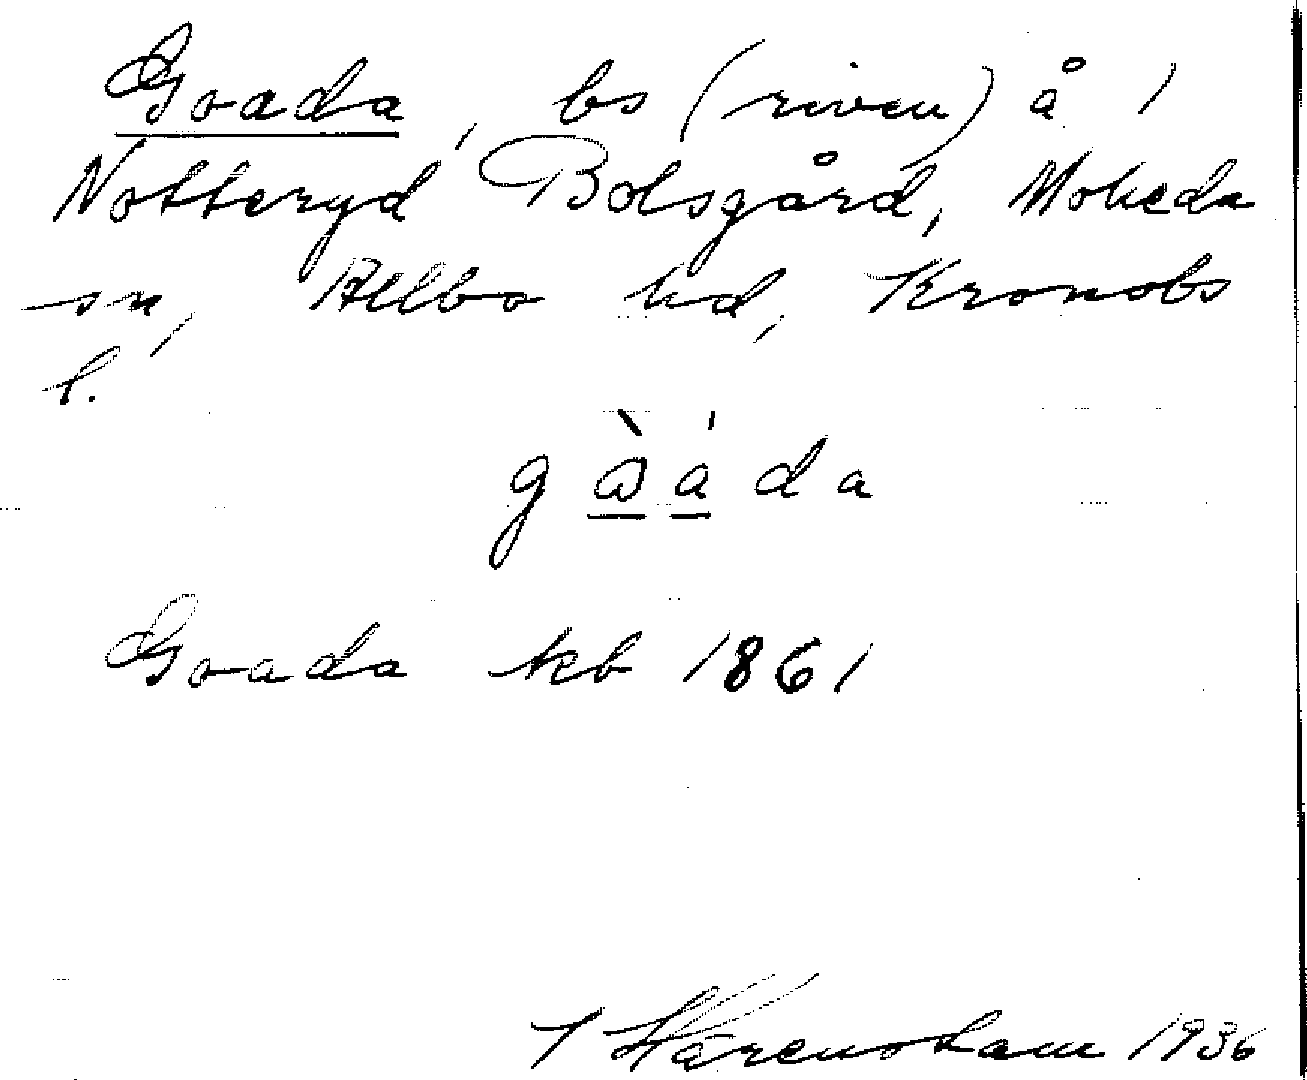 Goada, bs (riven) å 1
Notteryd Bolsgård, Moheda
sn, Allbo hd, Kronobs
l.
gòáda
Goada kb 1861
1936